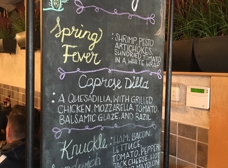 Spring
Fever
: SHRIMP, PESTO
ARTICHOKES
SUNDRIED TOMATO
IN A WHITE
Caprese Dilla
: A QUESADILLA, WITH GRILLED
CHICKEN, MOZZARELLA, TOMATO,
BALSAMIC GLAZE, AND BAZIL
Knuckle
: HAM, BACON,
LETTUCE,
TOMATO, PEPPER
JACK CHEESE